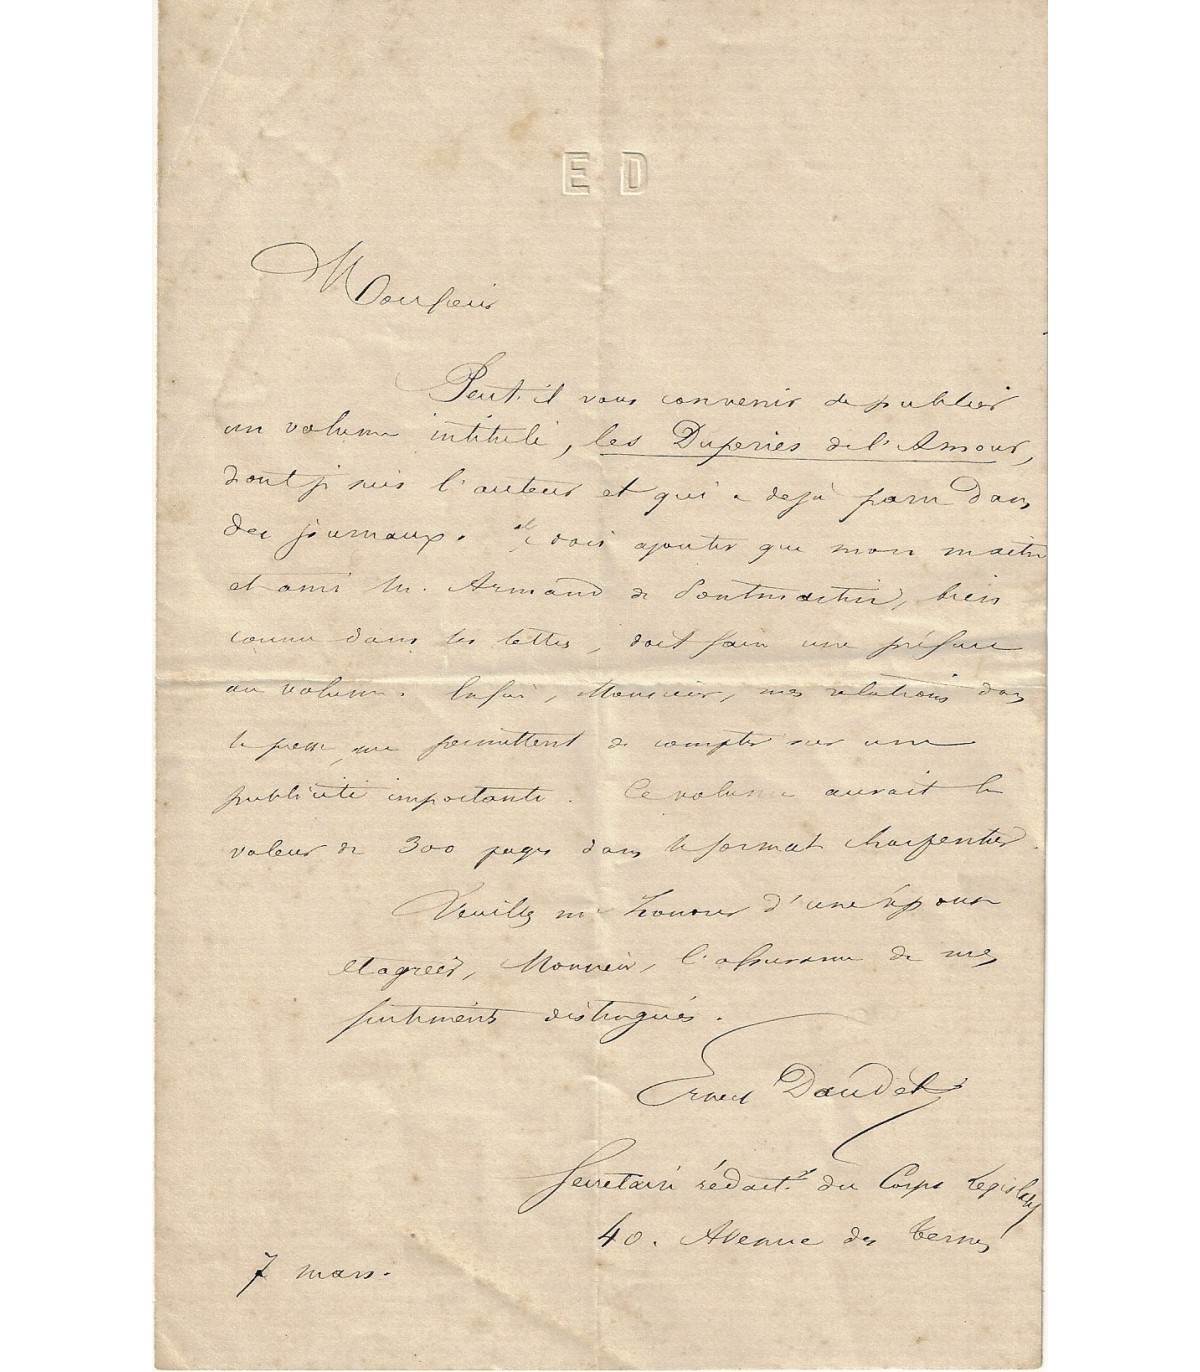 E D
Monsieur
Peut-il vous convenir de publier
un volume intitulé, les Duperies de l'Amour,
dont je suis l'auteur et qui a dejà paru dans
des journaux. Je dois ajouter que mon maître
et ami M. Armand de Pontmartin, bien
connu dans les lettres, doit faire une préface
au volume. Enfin, Monsieur, mes relations dans
la presse me permettent de compter sur une
publicité importante. Ce volume aurait la
valeur de 300 pages dans le format Charpentier
Veuillez m'honorer d'une réponse
et agréer, Monsieur, l'assurance de mes
sentiments distingués.
Ernest Daudet
Secretaire rédactr. du Corps Legislatif
40. Avenue des Ternes
7 mars.